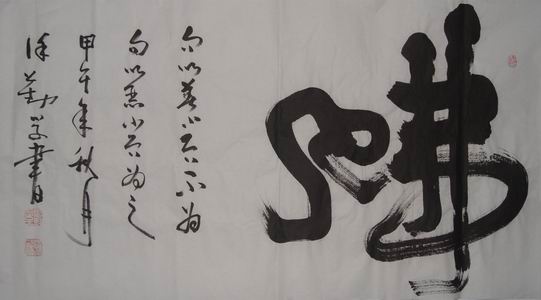 佛
勿以善小而不为
勿以恶小而为之
甲午年秋月
徐勤学書